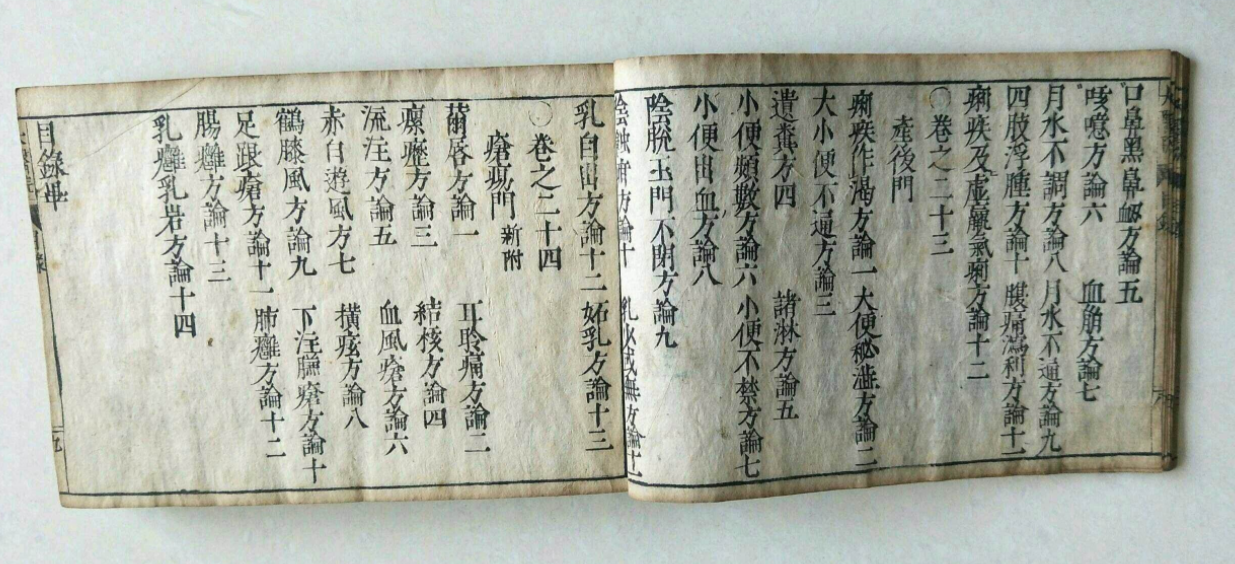 口鼻黑鼻衂方論五
咳噫方論六　血崩方論七
月水不調方論八　月水不通方論九
四肢浮腫方論十　腹痛瀉利方論十一
痢疾及虛羸氣痢方論十二
〇卷之二十三
產後門
痢疾作渴方論一　大便秘澁方論二
大小便不通方論三
遺糞方四　諸淋方論五
小便頻數方論六　小便不禁方論七
小便出血方論八
陰脫玉門不閉方論九
方論十　乳少或無方論十一
乳自出方論十二　妬乳方論十三
〇卷之二十四
瘡瘍門　新附
繭唇方論一　耳聆痛方論二
瘰癧方論三　結核方論四
流注方論五　血風瘡方論六
赤白遊風方七　橫痃方論八
鶴膝風方論九　下注臁瘡方論十
足跟瘡方論十一　肺癰方論十二
腸癰方論十三
乳癰乳岩方論十四
目錄畢